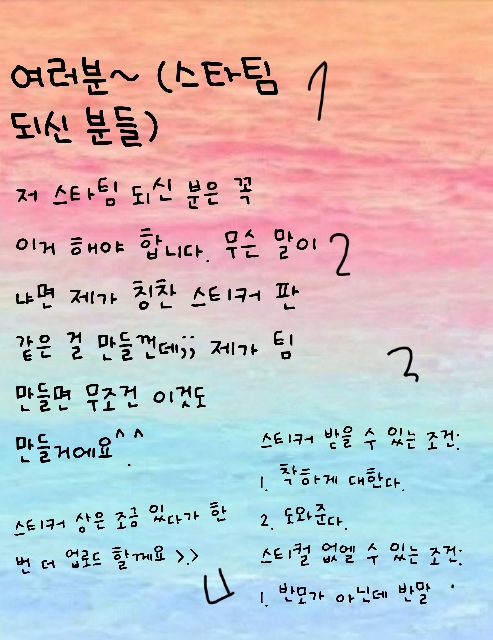 여러분~ (스타팀
되신 분들)
1
저 스타팀 되신 분은 꼭
이거 해야 합니다. 무슨 말이
2
냐면 제가 칭찬 스티커 판
같은 걸 만들껀데;; 제가 팀
만들면 무조건 이것도
만들거에요^^
3
스티커 받을 수 있는 조건:
1. 착하게 대한다.
2. 도와준다.
스티컬 없엘 수 있는 조건:
1. 반모가 아닌데 반말
스티커 상은 조금 있다가 한
번 더 업로드 할께요 >.>
4